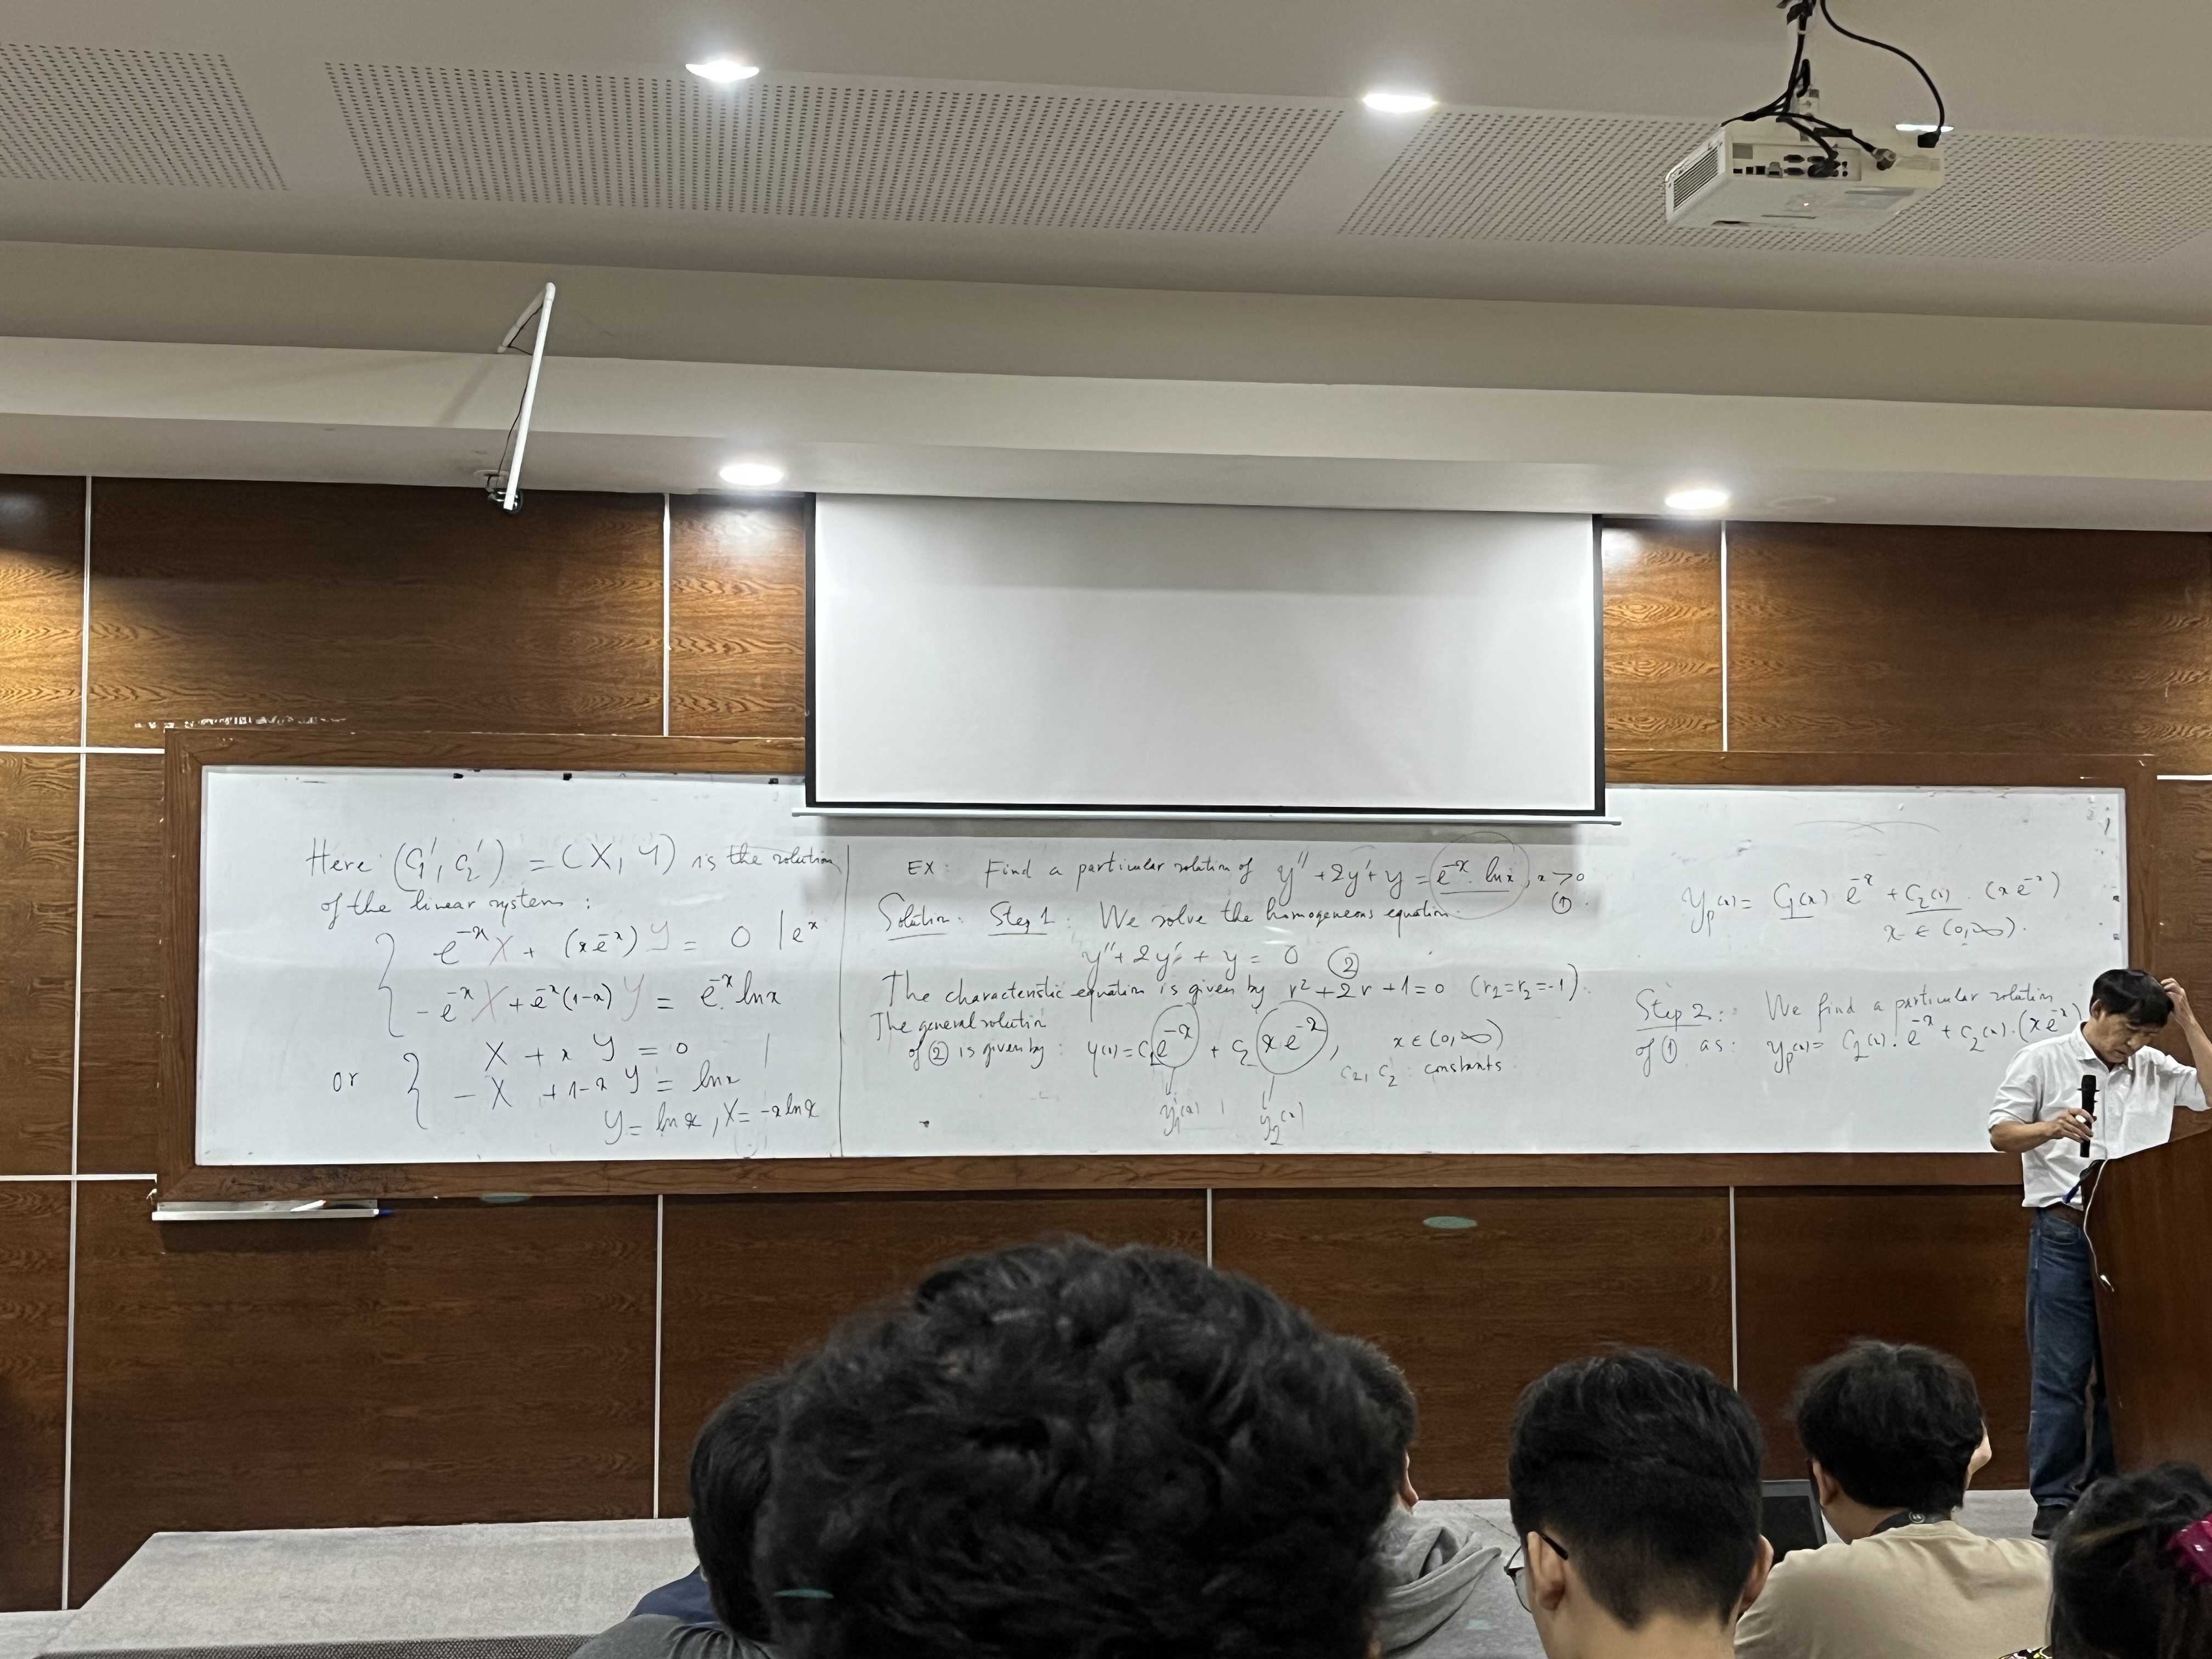 Here: (C₁', C₂') = (X, Y) is the solution
of the linear system:
e⁻ˣ X + (xe⁻ˣ) Y = 0 | eˣ
-e⁻ˣ X + e⁻ˣ(1-x) Y = e⁻ˣ. lnx
or { X + x Y = 0 |
- X + 1-x Y = lnx
Y = lnx, X = -xlnx
EX: Find a particular solution of y'' + 2y' + y = e⁻ˣ. lnx, x > 0
①
Solution: Step 1: We solve the homogeneous equation.
y'' + 2y' + y = 0 ②
The characteristic equation is given by r² + 2r + 1 = 0 (r₁ = r₂ = -1).
The general solution
of ② is given by: y(x) = C₁ e⁻ˣ + C₂ x e⁻ˣ, x ∈ (0,∞)
C₁, C₂: constants
y₁(x) y₂(x)
yₚ(x) = C₁(x) . e⁻ˣ + C₂(x) . (xe⁻ˣ)
x ∈ (0,∞).
Step 2: We find a particular solution
of ① as: yₚ(x) = C₁(x). e⁻ˣ + C₂(x). (xe⁻ˣ)